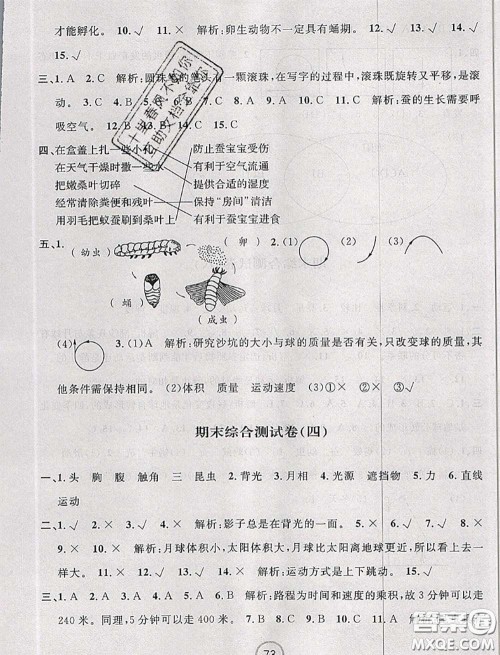 才能孵化。 10.√ 11.× 12.√ 13.√ 14.√
15.√
三、1.A 2.C 解析:圆珠笔的笔头有一颗滚珠,在写字的过程中,滚珠既旋转又平移,是混
合运动。 3.C 解析:蚕的生长需要呼
吸空气。
四、在盒盖上扎一些小孔 防止蚕宝宝受伤
在天气干燥时撒一些水 有利于空气流通
把嫩桑叶切碎 提供合适的湿度
经常清除粪便和残叶 保持“房间”清洁
用羽毛把蚁蚕刷到桑叶上 有利于蚕宝宝进食
五、1. (幼虫) (卵) 2.(1) (2) (3)
(蛹) (成虫)
(4) 3.(1)A 解析:研究沙坑的大小与球的质量是否有关,只改变球的质量,其
他条件需保持相同。 (2)体积 质量 运动速度 (3)①× ②× ③√
期末综合测试卷(四)
一、1.头 胸 腹 触角 三 昆虫 2.背光 3.月相 4.光源 遮挡物 5.力 6.直线
运动
二、1.√ 2.× 3.√ 4.× 解析:影子总是在背光的一面。 5.√ 6.√ 7.√ 8.
× 9.× 10.× 解析:月球体积小,太阳体积大,但太阳距离地球更远,所以看上去一
样大。 11.× 12.√ 13.√ 14.× 解析:运动方式是上下跳动。 15.√
三、1.A 2.A 3.A 4.C 5.A 6.B 解析:路程为时间和速度的乘积,故3分钟可以走
240米。同理,5分钟可以走400米。 7.B 8.C 9.C 10.C 11.C
73